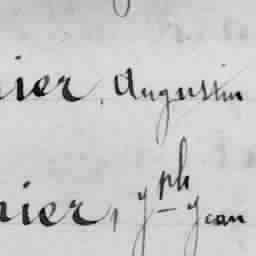 ier, Augustin
nier, Jph Jean